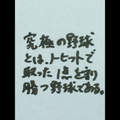 究極の野球
とは、ノーヒットで
取った1点を守り
勝つ野球である。